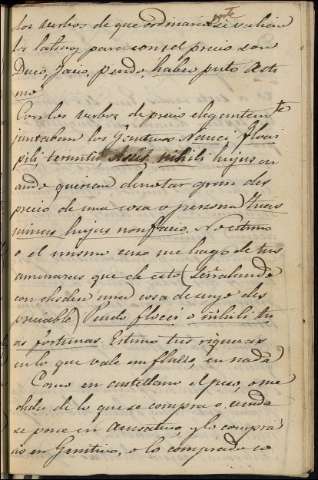 los verbos de que ordinariam.te se valian
los latinos para con el precio son
Duco, facio, pendo, habeo, puto, æsti
mo
Con los verbos de precio elegantem.te
juntaban los Genitivos Nauci, flocci
pili, teruntii, Assis, nihili, hujus cu
ando querian denotar gran des
precio de una cosa o persona tuas
minas hujus non facio. No estimo
o el mismo caso me hago de tus
amenazas que de esto (señalando
con el dedo una cosa de auge des
preciable) flocci o nihili tu
as fortunas. Estimo tus riquezas
en lo que vale un flueco, en nada
Como en castellano el peso, o me
dida de lo que se compra o vende
se pone en Acusativo, y lo compra
do en Genitivo, o lo comprado co